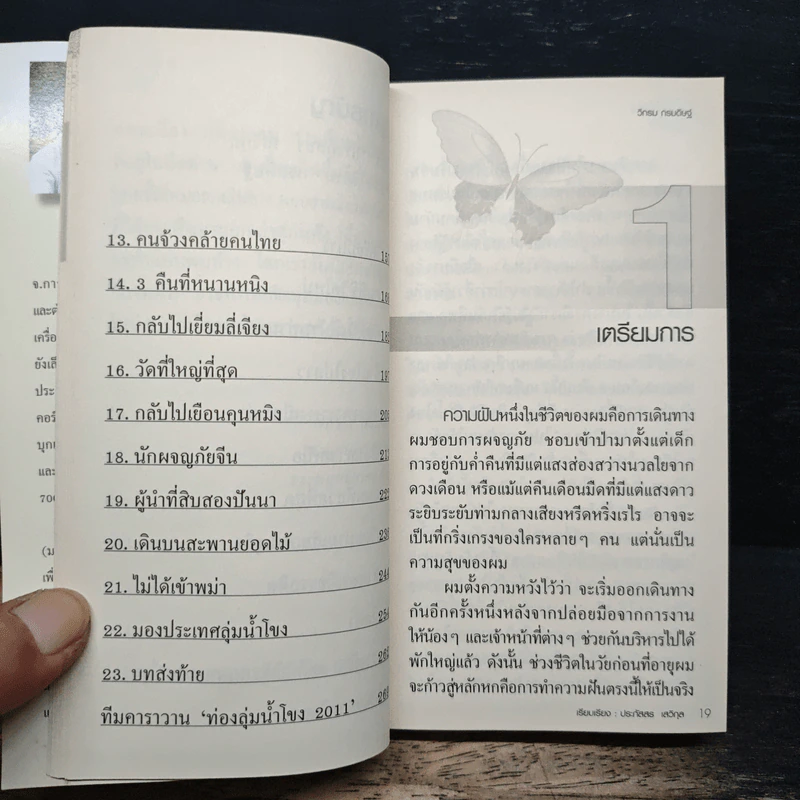 จ.กา
และต
เครื่อ
ยังเล็
ประ
คอร์
บุกเ
และ
700
(ม
เพื่
13. คนจ้วงคล้ายคนไทย 15
14. 3 คืนที่หนานหนิง 16
15. กลับไปเยี่ยมลี่เจียง 18
16. วัดที่ใหญ่ที่สุด 19
17. กลับไปเยือนคุนหมิง 20
18. นักผจญภัยจีน 21
19. ผู้นำที่สิบสองปันนา 22
20. เดินบนสะพานยอดไม้ 23
21. ไม่ได้เข้าพม่า 244
22. มองประเทศลุ่มน้ำโขง 254
23. บทส่งท้าย 26
ทีมคาราวาน ‘ท่องลุ่มน้ำโขง 2011’ 26
วิกรม กรมดิษฐ์
1
เตรียมการ
ความฝันหนึ่งในชีวิตของผมคือการเดินทาง
ผมชอบการผจญภัย ชอบเข้าป่ามาตั้งแต่เด็ก
การอยู่กับค่ำคืนที่มีแต่แสงส่องสว่างนวลใยจาก
ดวงเดือน หรือแม้แต่คืนเดือนมืดที่มีแต่แสงดาว
ระยิบระยับท่ามกลางเสียงหรีดหริ่งเรไร อาจจะ
เป็นที่กริ่งเกรงของใครหลายๆ คน แต่นั่นเป็น
ความสุขของผม
ผมตั้งความหวังไว้ว่า จะเริ่มออกเดินทาง
กันอีกครั้งหนึ่งหลังจากปล่อยมือจากการงาน
ให้น้องๆ และเจ้าหน้าที่ต่างๆ ช่วยกันบริหารไปได้
พักใหญ่แล้ว ดังนั้น ช่วงชีวิตในวัยก่อนที่อายุผม
จะก้าวสู่หลักหกคือการทำความฝันตรงนี้ให้เป็นจริง
เรียบเรียง : ประภัสสร เสวิกุล 19